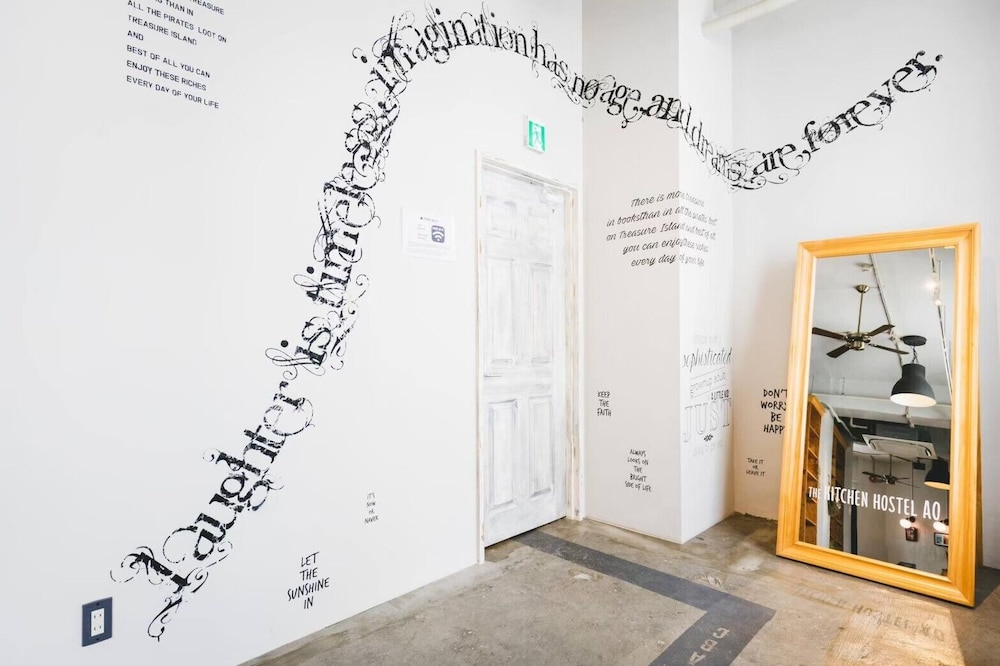 TREASURE
THAN IN
ALL THE PIRATES' LOOT ON
TREASURE ISLAND
AND
BEST OF ALL YOU CAN
ENJOY THESE RICHES
EVERY DAY OF YOUR LIFE
Laughter is timeless, imagination has no age, and dreams are forever.
There is more treasure
in booksthan in all the pirates' loot
on Treasure Island and best of all
you can enjoy these riches
every day of your life.
sophisticated
grownup adult
A LITTLE KID
JUST
KEEP
THE
FAITH
ALWAYS
LOOKS ON
THE
BRIGHT
SIDE OF LIFE
DON'T
WORRY
BE
HAPPY
TAKE IT
OR
LEAVE IT
IT'S
NOW
OR
NAVER
LET
THE
SUNSHINE
IN
THE KITCHEN HOSTEL AO